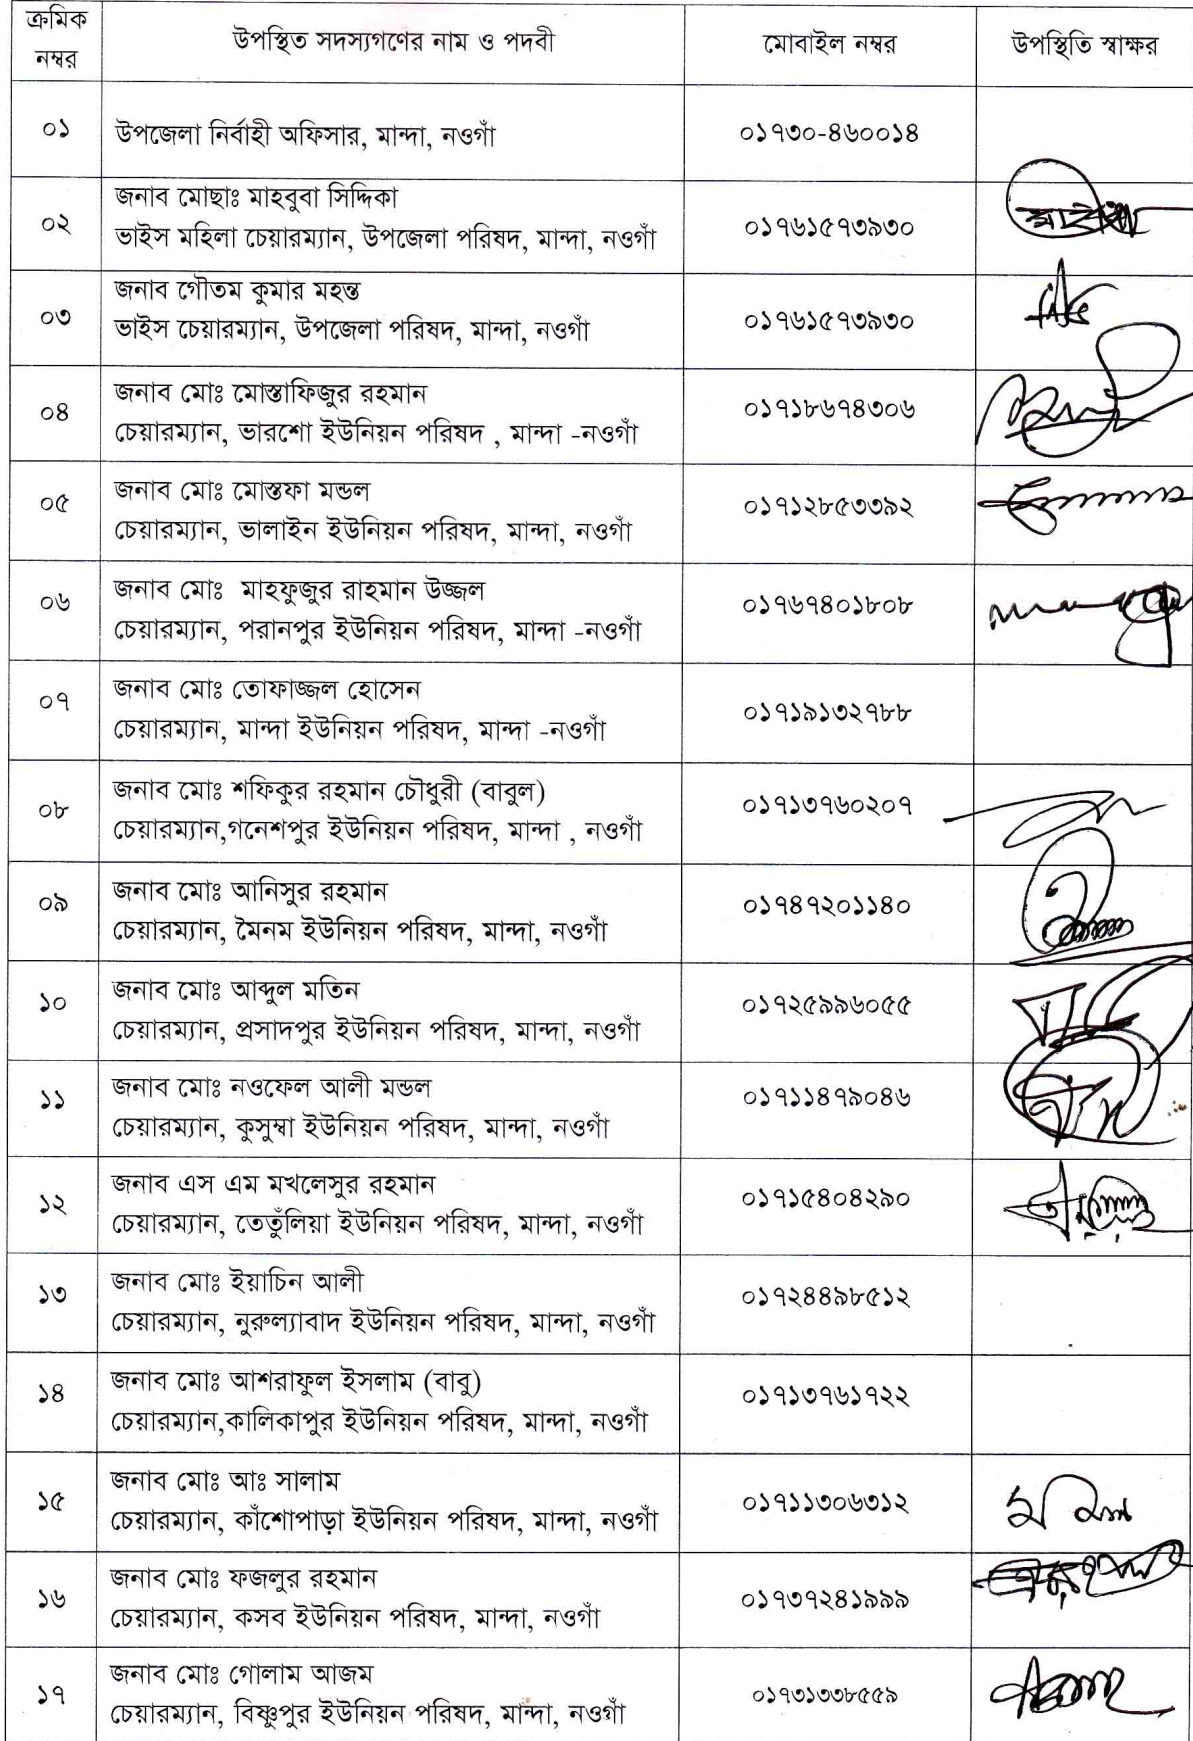 ক্রমিক নম্বর উপস্থিত সদস্যগণের নাম ও পদবী মোবাইল নম্বর উপস্থিতি স্বাক্ষর
০১ উপজেলা নির্বাহী অফিসার, মান্দা, নওগাঁ ০১৭৩০-৪৬০০১৪
জনাব মোছাঃ মাহবুবা সিদ্দিকা
০২ ভাইস মহিলা চেয়ারম্যান, উপজেলা পরিষদ, মান্দা, নওগাঁ ০১৭৬১৫৭৩৯৩০
জনাব গৌতম কুমার মহন্ত
০৩ ভাইস চেয়ারম্যান, উপজেলা পরিষদ, মান্দা, নওগাঁ ০১৭৬১৫৭৩৯৩০
জনাব মোঃ মোস্তাফিজুর রহমান
০৪ চেয়ারম্যান, ভারশো ইউনিয়ন পরিষদ , মান্দা -নওগাঁ ০১৭১৮৬৭৪৩০৬
জনাব মোঃ মোস্তফা মন্ডল
০৫ চেয়ারম্যান, ভালাইন ইউনিয়ন পরিষদ, মান্দা, নওগাঁ ০১৭১২৮৫৩৩৯২
জনাব মোঃ মাহফুজুর রাহমান উজ্জল
০৬ চেয়ারম্যান, পরানপুর ইউনিয়ন পরিষদ, মান্দা -নওগাঁ ০১৭৬৭৪০১৮০৮
জনাব মোঃ তোফাজ্জল হোসেন
০৭ চেয়ারম্যান, মান্দা ইউনিয়ন পরিষদ, মান্দা -নওগাঁ ০১৭১৯১৩২৭৮৮
জনাব মোঃ শফিকুর রহমান চৌধুরী (বাবুল)
০৮ চেয়ারম্যান,গনেশপুর ইউনিয়ন পরিষদ, মান্দা , নওগাঁ ০১৭১৩৭৬০২০৭
জনাব মোঃ আনিসুর রহমান
০৯ চেয়ারম্যান, মৈনম ইউনিয়ন পরিষদ, মান্দা, নওগাঁ ০১৭৪৭২০১১৪০
জনাব মোঃ আব্দুল মতিন
১০ চেয়ারম্যান, প্রসাদপুর ইউনিয়ন পরিষদ, মান্দা, নওগাঁ ০১৭২৫৯৯৬০৫৫
জনাব মোঃ নওফেল আলী মন্ডল
১১ চেয়ারম্যান, কুসুম্বা ইউনিয়ন পরিষদ, মান্দা, নওগাঁ ০১৭১১৪৭৯০৪৬
জনাব এস এম মখলেসুর রহমান
১২ চেয়ারম্যান, তেতুঁলিয়া ইউনিয়ন পরিষদ, মান্দা, নওগাঁ ০১৭১৫৪০৪২৯০
জনাব মোঃ ইয়াচিন আলী
১৩ চেয়ারম্যান, নুরুল্যাবাদ ইউনিয়ন পরিষদ, মান্দা, নওগাঁ ০১৭২৪৪৯৮৫১২
জনাব মোঃ আশরাফুল ইসলাম (বাবু)
১৪ চেয়ারম্যান,কালিকাপুর ইউনিয়ন পরিষদ, মান্দা, নওগাঁ ০১৭১৩৭৬১৭২২
জনাব মোঃ আঃ সালাম
১৫ চেয়ারম্যান, কাঁশোপাড়া ইউনিয়ন পরিষদ, মান্দা, নওগাঁ ০১৭১১৩০৬৩১২
জনাব মোঃ ফজলুর রহমান
১৬ চেয়ারম্যান, কসব ইউনিয়ন পরিষদ, মান্দা, নওগাঁ ০১৭৩৭২৪১৯৯৯
জনাব মোঃ গোলাম আজম
১৭ চেয়ারম্যান, বিষ্ণুপুর ইউনিয়ন পরিষদ, মান্দা, নওগাঁ ০১৭৩১৩৩৮৫৫৯